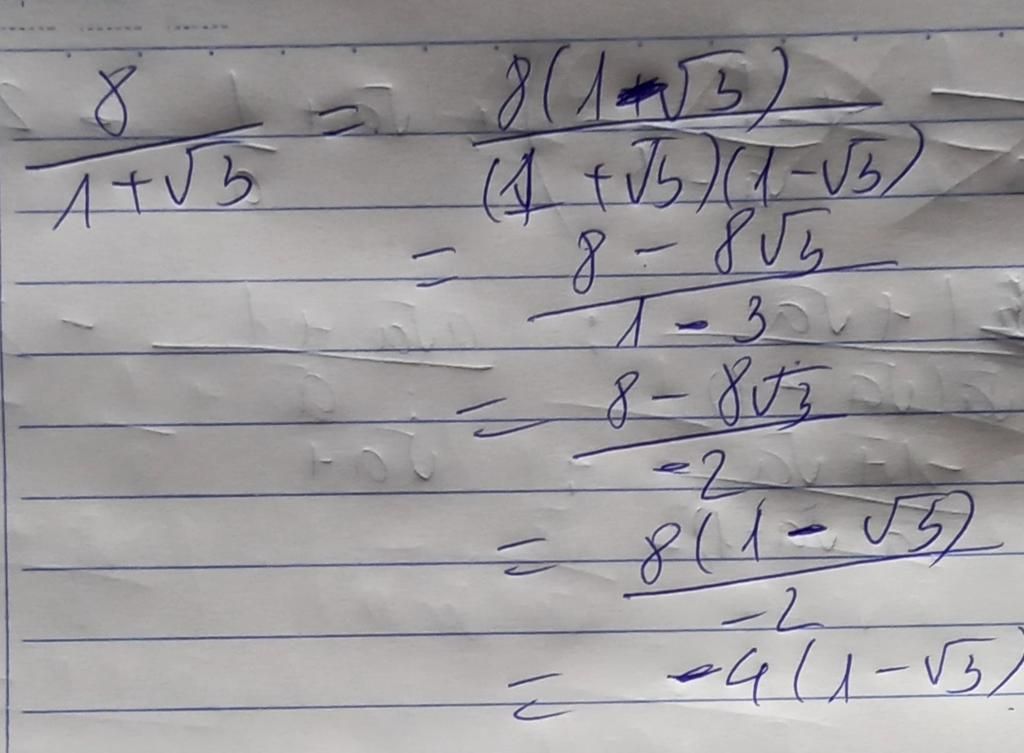 8/(1+√3) = 8(1-√3)/((1+√3)(1-√3))
= (8-8√3)/(1-3)
= (8-8√3)/(-2)
= 8(1-√3)/(-2)
= -4(1-√3)